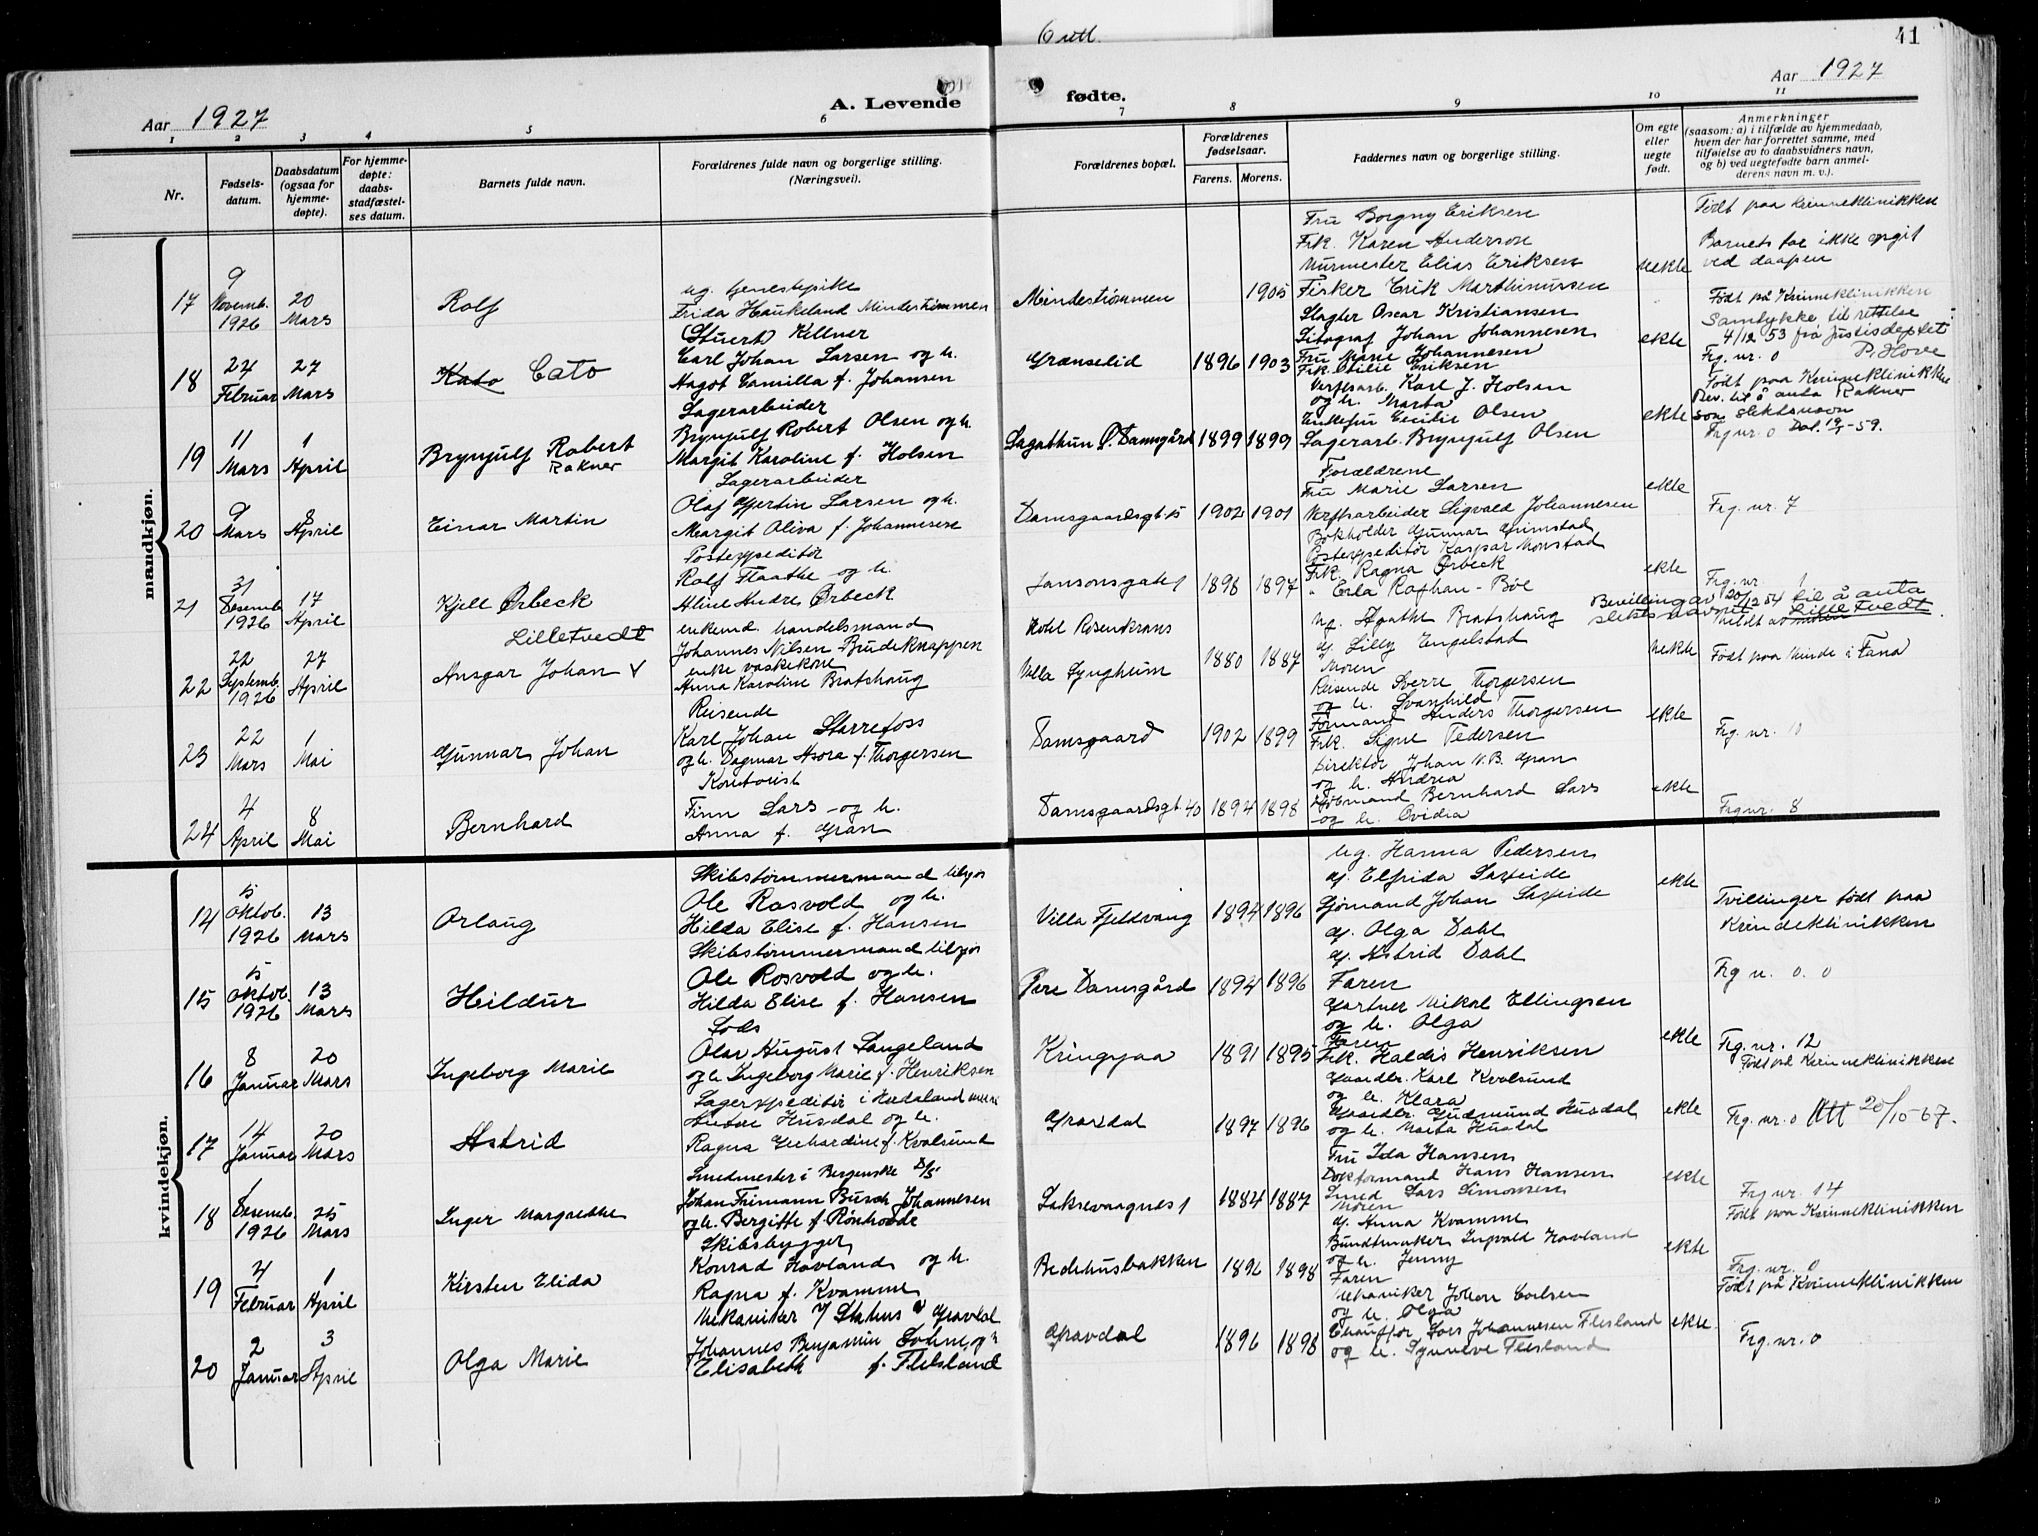 6 utl.
41
Aar 1927
A. Levende
fødte.
Aar 1927
1 2 3 4 5 6 7 8 9 10 11
Nr.
Fødsels-
datum.
Daabsdatum
(ogsaa for
hjemme-
døpte).
For hjemme-
døpte:
daabs-
stadfæstel-
ses datum.
Barnets fulde navn.
Forældrenes fulde navn og borgerlige stilling.
(Næringsvei).
Forældrenes bopæl.
Forældrenes
fødselsaar.
Farens. Morens.
Faddernes navn og borgerlige stilling.
Om egte
eller
uegte
født.
Anmerkninger
(saasom: a) i tilfælde av hjemmedaab,
hvem der har forrettet samme, med
tilføielse av to daabsvidners navn,
og b) ved uegtefødte barn anmel-
derens navn m. v.).
mandkjøn.
17
9
Novemb.
1926
20
Mars
Rolf
ug. tjenestepike
Frida Haukeland Mindestrømmen
Mindestrømmen
1905
Fru Borgny Eriksen
Frk. Karen Anderson
Murmester Elias Eriksen
Fisker Erik Marthinussen
uekte
Født paa Kvinneklinikken
Barnets far ikke opgit
ved daapen
18
24
Februar
27
Mars
Kato Cato
(Stuert) Kellner
Carl Johan Larsen og h.
Hagot Camilla f. Johansen
Grænselid
1896 1903
Slagter Oscar Kristiansen
Litograf Johan Johannesen
Fru Marie Johannesen
Frk. Otilie Eriksen
ekte
Født på Kvinneklinikken
Samtykke til rettelse
4/12 53 fra Justisdeptet
Frg. nr. 0 P. Hove
19
11
Mars
1
April
Brynjulf Robert
Rakner
Lagerarbeider
Brynjulf Robert Olsen og h.
Margit Karoline f. Holsen
Lagathun P. Damsgård
1899 1899
Verftsarb. Karl J. Holsen
og h. Marta
Enkefru Cecilie Olsen
Lagerarb. Brynjulf Olsen
ekte
Født paa Kvinneklinikken
Bev. til å anta Rakner
som slektsnavn
Frg nr. 0
20
9
Mars
8
April
Einar Martin
Lagerarbeider
Olaf Gjertin Larsen og h.
Margit Oliva f. Johannesen
Damsgaardsgt. 15
1902 1901
Forældrene
Fru Marie Larsen
Verftsarbeider Sigvald Johannesen
ekte
Frg. nr. 7
21
31
Desemb.
1926
17
April
Kjell Ørbeck
Postexpeditør
Rolf Flaathe og h.
Aline Andre Ørbeck
Jansonsgate 1
1898 1897
Bokholder Gunnar Grimstad
Postexpeditør Kaspar Monstad
Frk. Ragna Ørbeck
" Erla Rafhan-Bøe
ekte
Frg. nr. 1
22
22
Septemb.
1926
27
April
Lilletvedt
Ansgar Johan V
enkemd. handelsmand
Johannes Nilsen Brudeknappen
enke vaskekone
Anna Karoline Bratshaug
Hotel Rosenkrans
Villa Lyngheim
1880 1887
ug. Agathe Bratshaug
gf. Lilly Engelstad
Moren
uekte
Bevilling av 20/12 54 til å anta
slektsnavnet Lilletvedt
Født paa Minde i Fana
23
22
Mars
1
Mai
Gunnar Johan
Reisende
Karl Johan Starrefoss
og h. Dagmar Asora f. Thorgersen
Damsgaard
1902 1899
Reisende Sverre Thorgersen
og h. Svanhild
Formand Anders Thorgersen
Frk. Signe Pedersen
ekte
Frg. nr. 10
24
4
April
8
Mai
Bernhard
Kontorist
Finn Lars og h.
Anna f. Gran
Damsgaardsgt. 40
1894 1898
Direktør Johan N.B. Gran
og h. Andrea
Kjøbmand Bernhard Lars
og h. Ovidia
ekte
Frg nr. 8
kvindekjøn.
14
15
Oktob.
1926
13
Mars
Orlaug
Skibstømmermand tilsjøs
Ole Rosvold og h.
Hilda Elise f. Hansen
Villa Fjeldvang
1894 1896
ug. Hanna Pedersen
gf. Elfrida Sarfeide
Sjømand Johan Sarfeide
gf. Olga Dahl
ekte
Tvillinger født paa
Kvindeklinikken
15
15
Oktob.
1926
13
Mars
Hildur
Skibstømmermand tilsjøs
Ole Rosvold og h.
Hilda Elise f. Hansen
Øvre Damsgård
1894 1896
gf. Astrid Dahl
Faren
Frg n. 0. 0
16
8
Januar
20
Mars
Ingeborg Marie
Lods
Olav August Langeland
og h. Ingeborg Marie f. Henriksen
Kringsjaa
1891 1895
Gartner Mikal Ellingsen
og h. Olga
Faren
Frk. Haldis Henriksen
ekte
Frg. nr. 12
17
14
Januar
20
Mars
Astrid
Lagerexpeditør i Hordaland meieri
Anton Husdal og h.
Ragna Gerhardine f. Kvalsund
Gravdal
1897 1896
Gaardbr. Karl Kvalsund
og h. Klara
Gaardbr. Gudmund Husdal
og h. Marta Husdal
ekte
Født på Kvinneklinikken
Frg. nr. 0 Att 20/10-67.
18
1
Desemb.
1926
25
Mars
Inger Margrethe
Smedmester i Bergenske D/S
Johan Frimann Busch Johannesen
og h. Bergitte f. Rønhovde
Laksevaagnes 1
1884 1887
Fru Ida Hansen
Dokformand Hans Hansen
Smed Lars Simonsen
Moren
ekte
Frg nr. 14
19
4
Februar
1
April
Kirsten Elida
Skibsbygger
Konrad Havland og h.
Ragna f. Kvamme
Bedehusbakken
1896 1898
gf. Anna Kvamme
Bundtmaker Ingvald Havland
og h. Jenny
Faren
ekte
Født paa Kvinneklinikken
Frg. nr. 0
20
2
Januar
3
April
Olga Marie
Mekaniker
Johannes Benjamin Bohne og h
Elisabeth f. Flesland
Gravdal
1896 1898
Mekaniker Johan Carlsen
og h. Olga
Chauffør Lars Johannesen Flesland
og h. Synneve Flesland
ekte.
Født på Kvinneklinikken
Frg. nr. 0